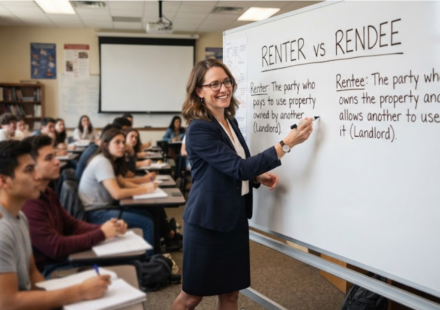 RENTER vs RENDEE
Renter: The party who
pays to use property
owned by another
(Landlord)
Rentee: The party who
owns the property and
allows another to use
it (Landlord)